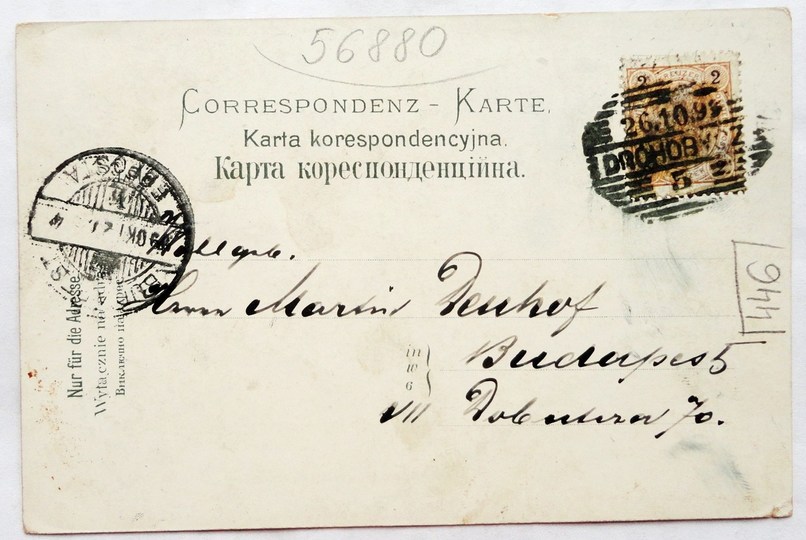 56880
CORRESPONDENZ – KARTE.
Karta korespondencyjna.
Карта кореспонденцїйна.
2 2
26.10.9
DROHOBYCZ
5
446
Herrn Martin Denhof
in
w
в
Budapest
VII Dobutcza 70.
Nur für die Adresse.
Wyłącznie na adres.
Виключно на адрес.